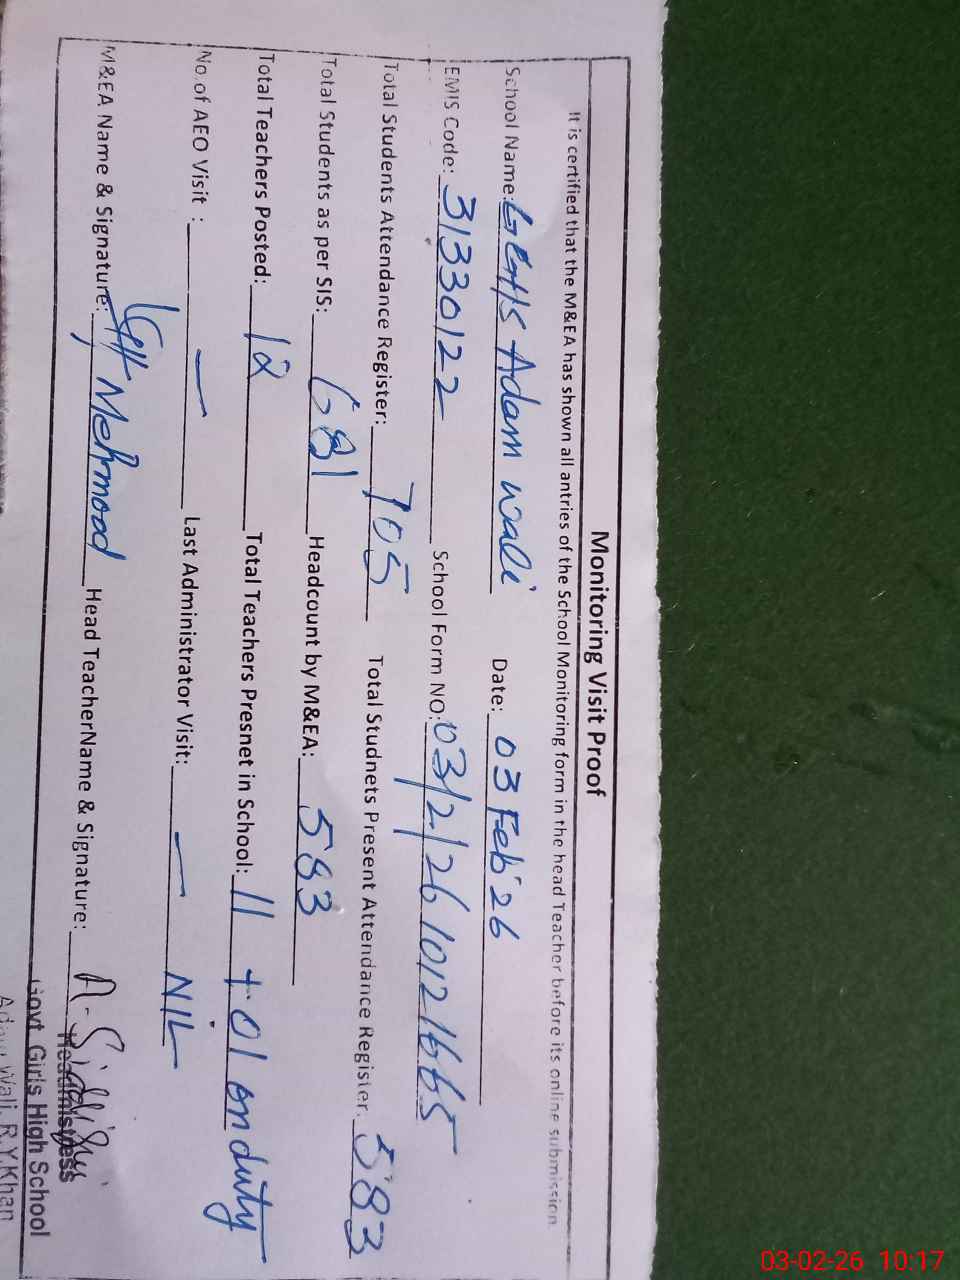 Monitoring Visit Proof
It is certified that the M&EA has shown all antries of the School Monitoring form in the head Teacher before its online submission.
School Name: GGHS Adam wali Date: 03 Feb' 26
EMIS Code: 31330122 School Form NO: 03/2/26 10121665
Total Students Attendance Register: 705 Total Studnets Present Attendance Register: 583
Total Students as per SIS: 681 Headcount by M&EA: 583
Total Teachers Posted: 12 Total Teachers Presnet in School: 11 + 01 on duty
No. of AEO Visit : — Last Administrator Visit: — NIL
M&EA Name & Signature: Mehmood Head TeacherName & Signature: A. Siddiqui
Headmistress
Govt Girls High School
Adam Wali, R.Y.Khan
03-02-26 10:17